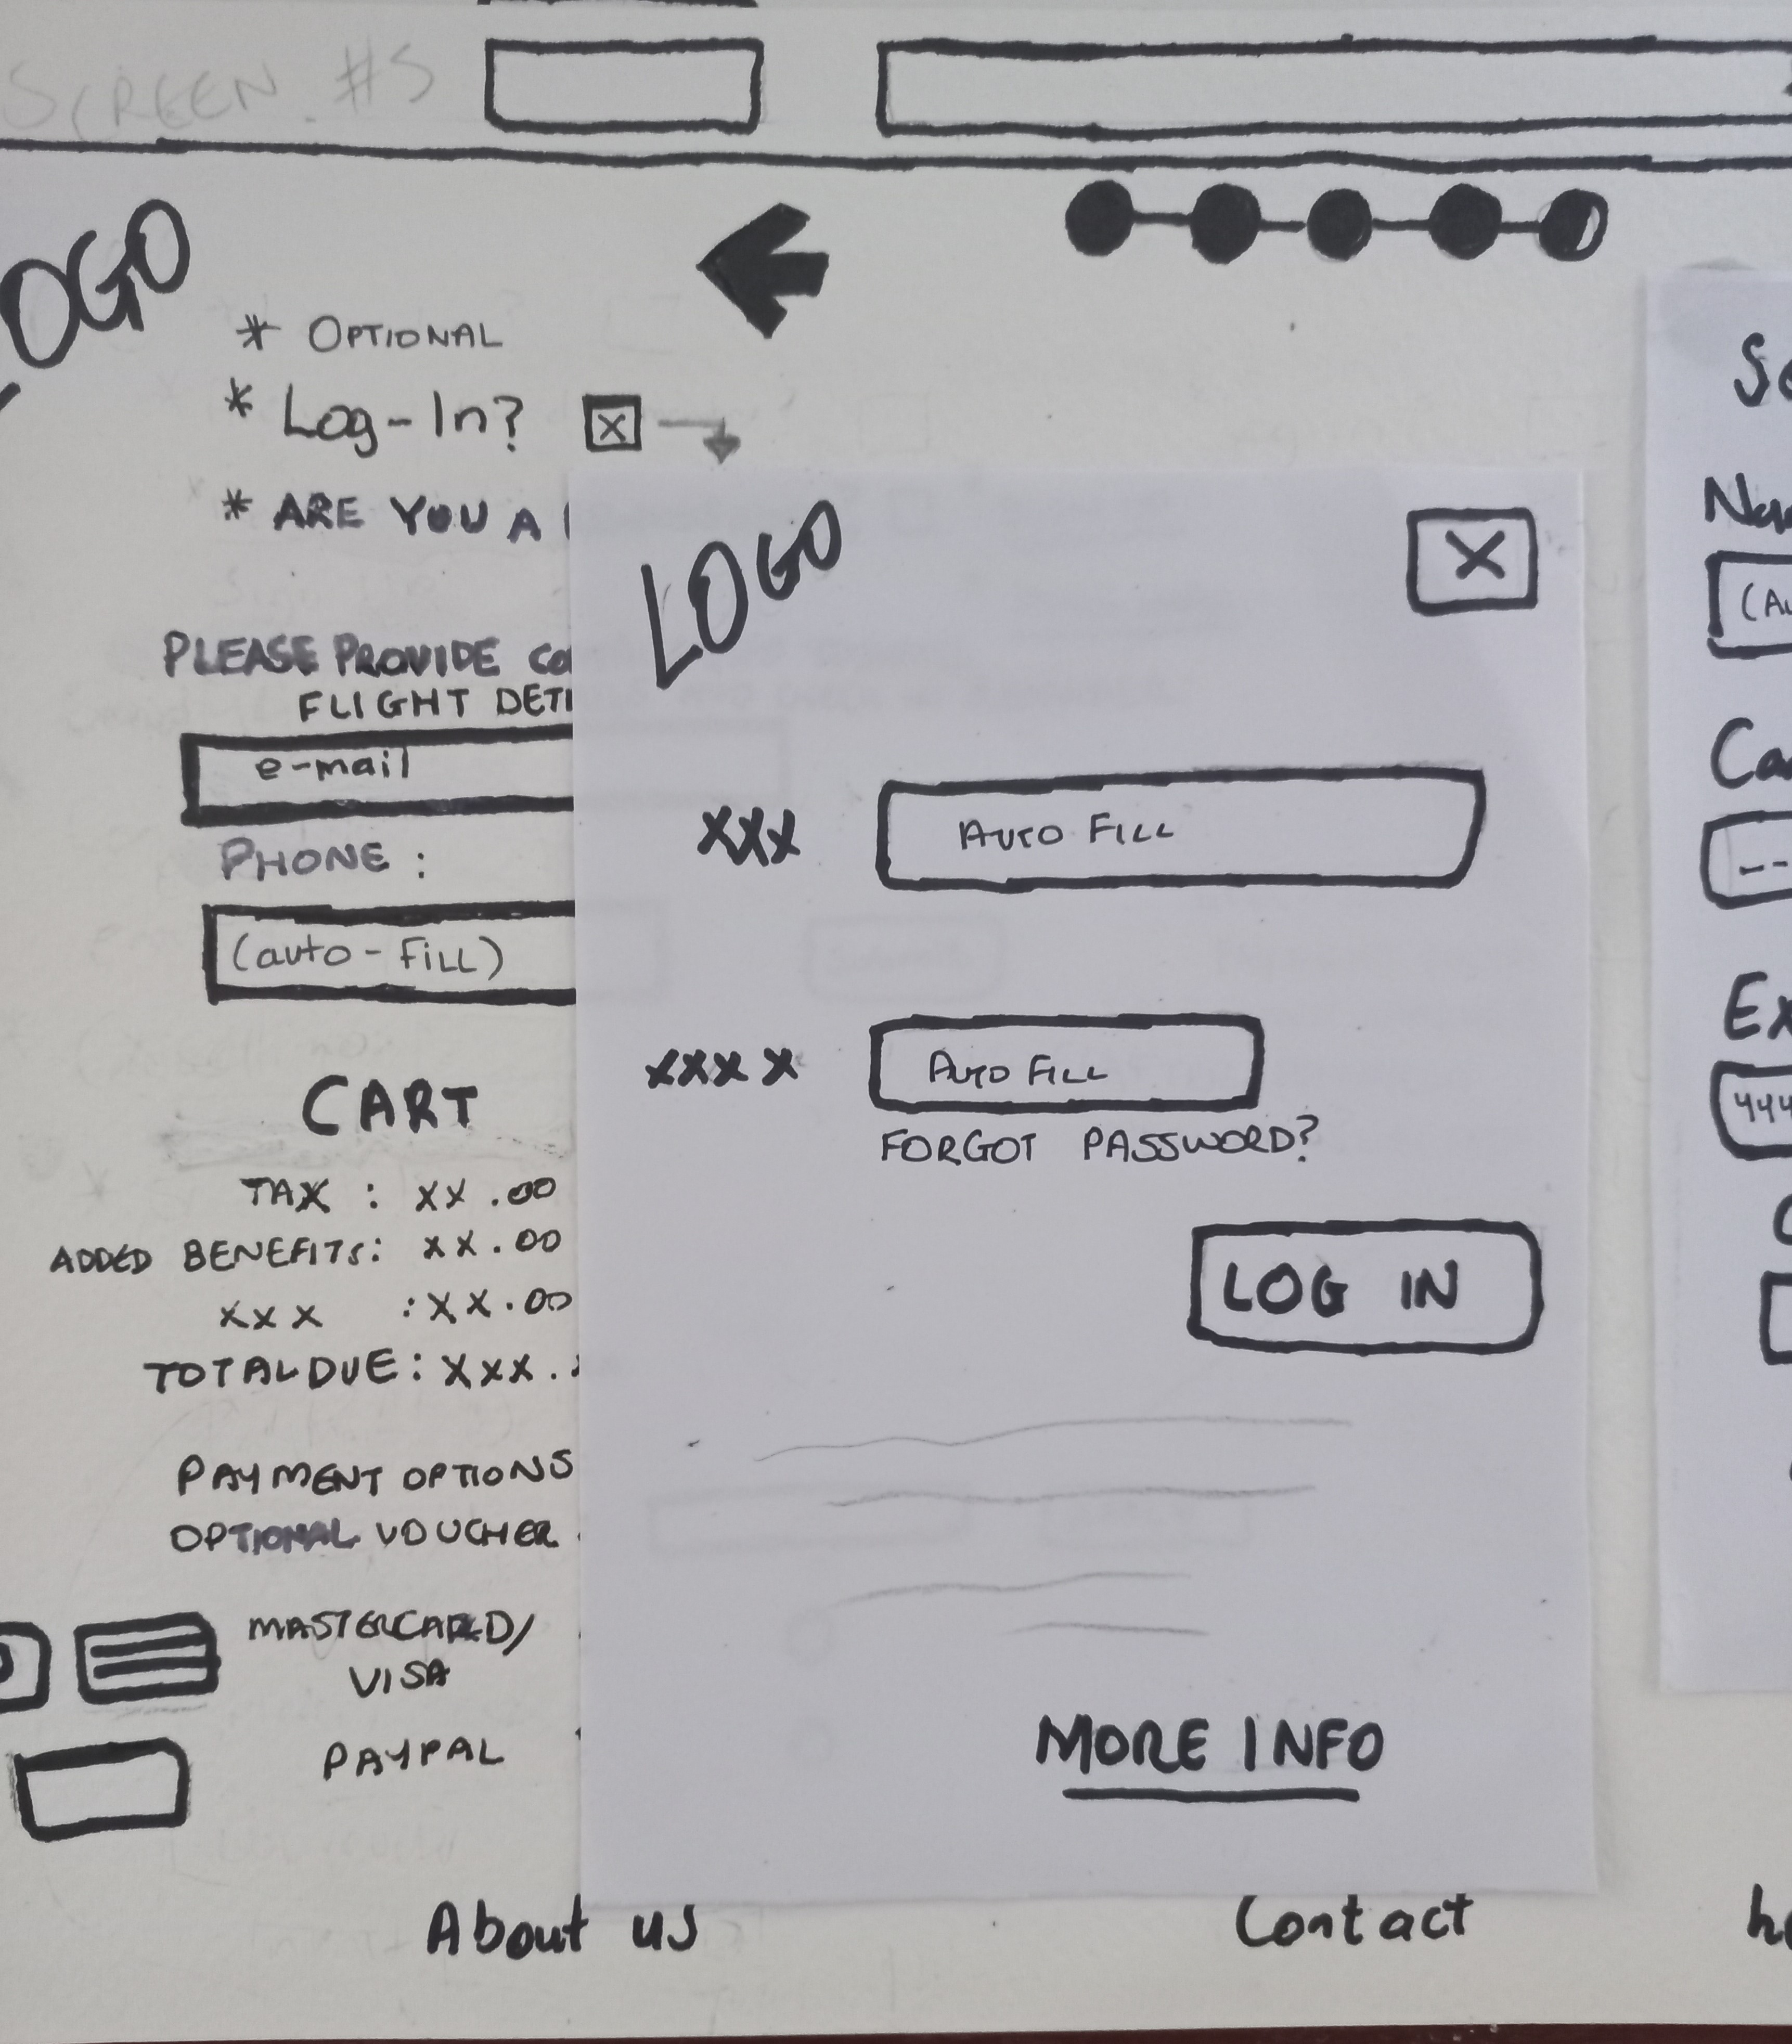 SCREEN #5
LOGO
* OPTIONAL
* Log-In?
* ARE YOU A
PLEASE PROVIDE
FLIGHT
e-mail
PHONE :
(auto-FILL)
CART
TAX : XX.00
ADDED BENEFITS: XX.00
XXX :XX.00
TOTAL DUE: XXX.
PAYMENT OPTIONS
OPTIONAL VOUCHER
MASTERCARD/
VISA
PAYPAL
LOGO
X
XXX AUTO FILL
XXXX AUTO FILL
FORGOT PASSWORD?
LOG IN
MORE INFO
About us
Contact